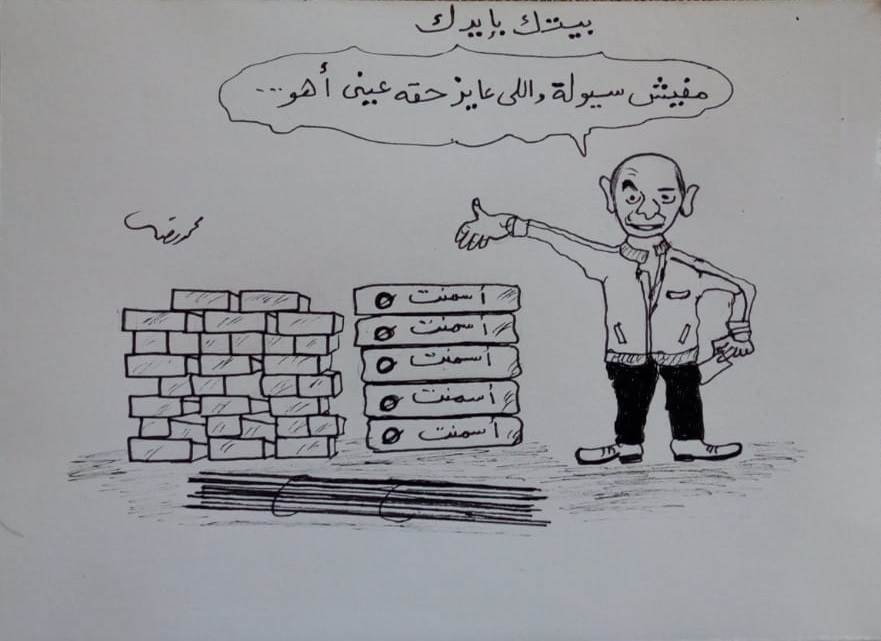 بيتك بإيدك
مفيش سيولة واللى عايز حقه عينى أهو...
أسمنت
أسمنت
أسمنت
أسمنت
أسمنت
محمد رضا